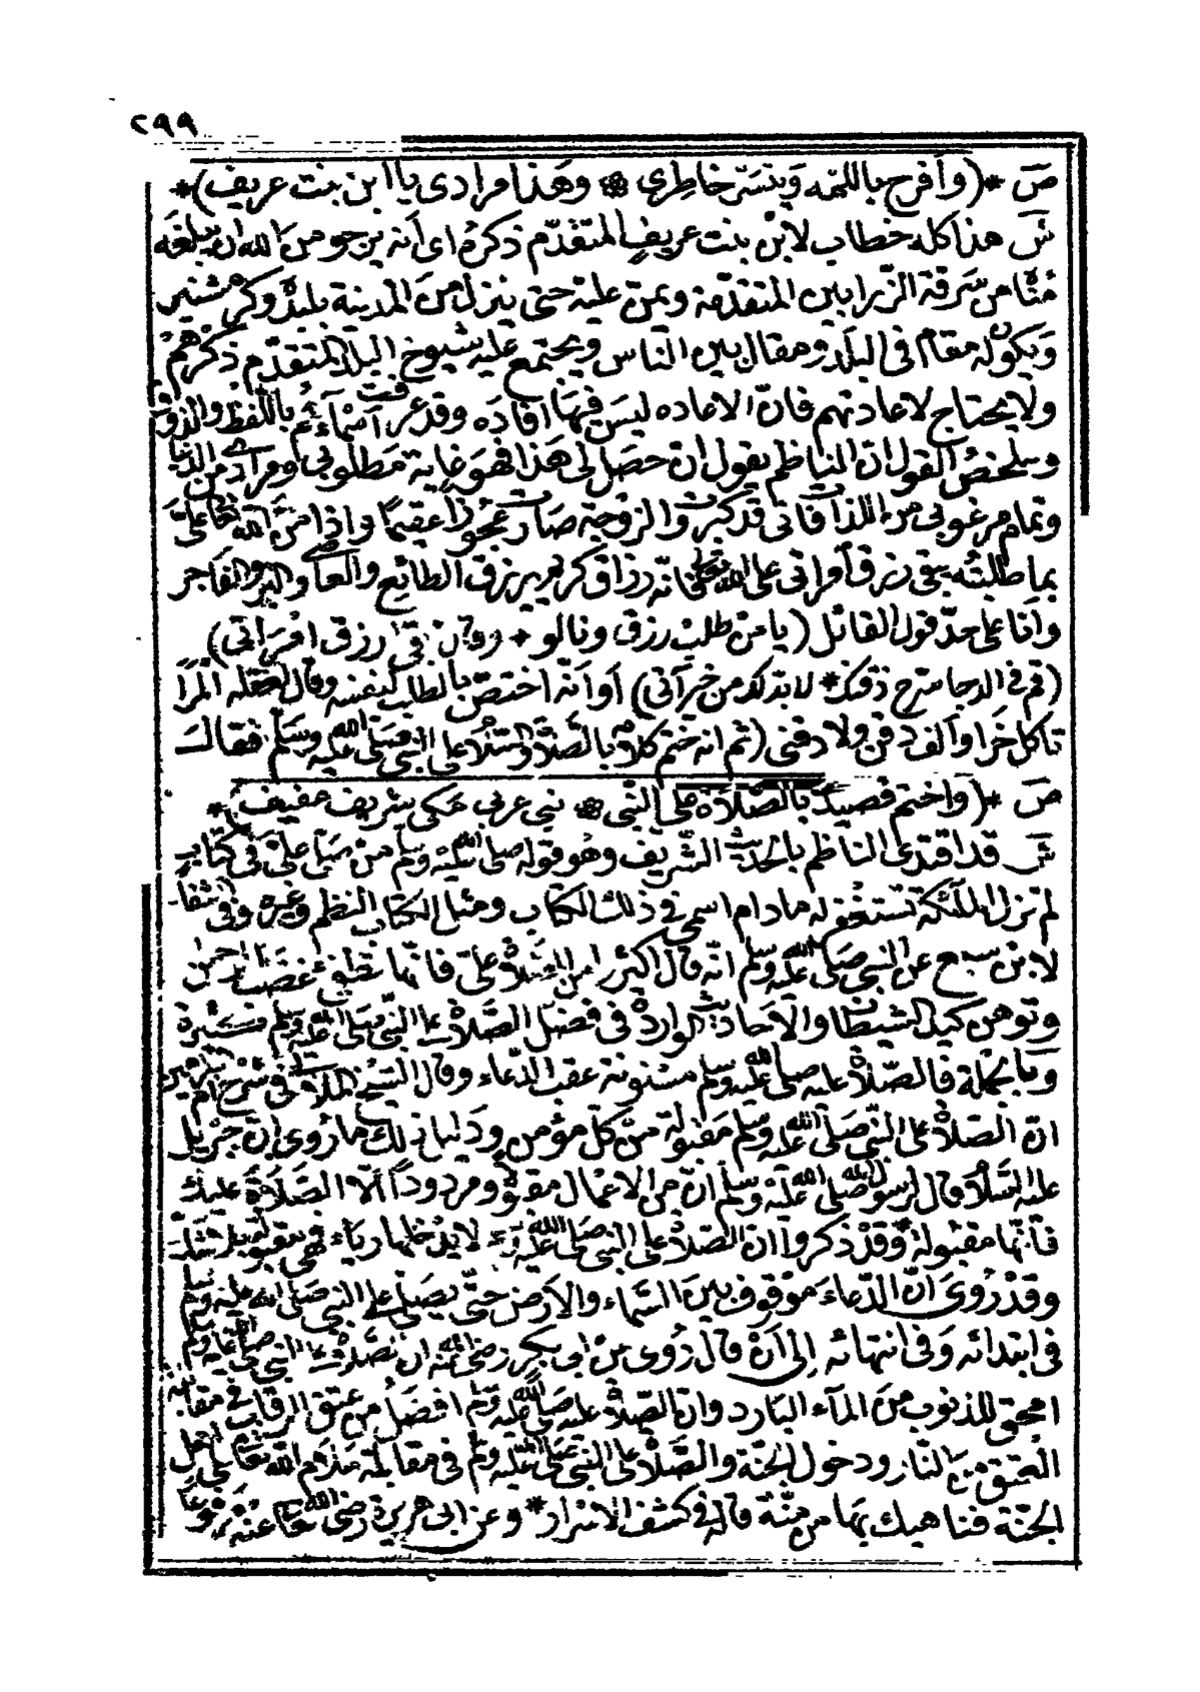 ٢٩٩
ص *(وأفرح باللمه وينسر خاطري * وهذا مرادي يا ابن بنت عريف)*
ش هذا كله خطاب لابن بنت عريف المتقدم ذكره اى أنه يرجو من الله ان يبلغه
من سرقة الزرابين المتقدمة ويمن عليه حتى ينزل من المدينة بلبد وكر مشنير
ويكون له مقام فى البلد ومقال بين الناس ويجتمع عليه شيوخ البلد المتقدم ذكرهم
ولا يحتاج لاعادتهم فان الاعاده ليس فيها افاده وقد عرفت أسماءهم باللفظ والذوق
وملخص القول ان الناظم يقول ان حصل لى هذا فهو غاية مطلوبى ومرادى من الدنيا
وتمام مرغوبى من اللذات فانى قد كبرت والزوجة صارت عجوزا عقيما واذا من الله تعالى على
بما طلبته بقى رزق أمراتى على الله تعالى فانه رزاق كريم يرزق الطائع والعاصى والبر والفاجر
وانا على حد قول القائل (يا من طلب رزق ونالو * رزق امراتى)
(قم فى الدجا سرح ذقنك * لابد لك من خرآتى) أو أنه اختص بالطلب لنفسه وقال لعقله المرا
تاكل خرا وألف دقن ولا دقنى (ثم انه ختم كلامه بالصلاة والسلام على النبى صلى الله عليه وسلم فقال
ص *(واختم قصيدى بالصلاة على النبى * نبى عربى مكى شريف عفيف)*
ش قد اقتدى الناظم بالحديث الشريف وهو قوله صلى الله عليه وسلم من صلى على فى كتاب
لم تزل الملائكة تستغفر له ما دام اسمى فى ذلك الكتاب ومثل الكتاب النظم وغيره وفى الشفا
لابن سبع عن النبى صلى الله عليه وسلم انه قال اكثروا من الصلاة على فانها تطفئ غضب الرحمن
وتوهن كيد الشيطان والأحاديث الواردة فى فضل الصلاة على النبى صلى الله عليه وسلم كثيرة
وبالجملة فالصلاة عليه صلى الله عليه وسلم مسنونة عقب الدعاء وقال الشيخ الملا فى شرح
ان الصلاة على النبى صلى الله عليه وسلم مقبولة من كل مؤمن ودليل ذلك ما روى ان جبريل
عليه السلام قال لرسول الله صلى الله عليه وسلم ان من الاعمال مقبولا ومردودا الا الصلاة عليك
فانها مقبولة وقد ذكروا ان الصلاة على النبى صلى الله عليه وسلم لا يدخلها رياء فهى مقبولة بلا شك
وقد روى ان الدعاء موقوف بين السماء والارض حتى يصلى على النبى صلى الله عليه وسلم
فى ابتدائه وفى انتهائه الى أن قال روى عن ابى بكر رضى الله عنه ان الصلاة على النبى صلى الله عليه وسلم
امحق للذنوب من الماء البارد وان الصلاة عليه صلى الله عليه وسلم افضل من عتق الرقاب فى مقابلة
العتق من النار ودخول الجنة والصلاة على النبى صلى الله عليه وسلم فى مقابلة
الجنة فناهيك بها من منة قاله فى كشف الاسرار * وعن ابى هريرة رضى الله تعالى عنه مرفوعا